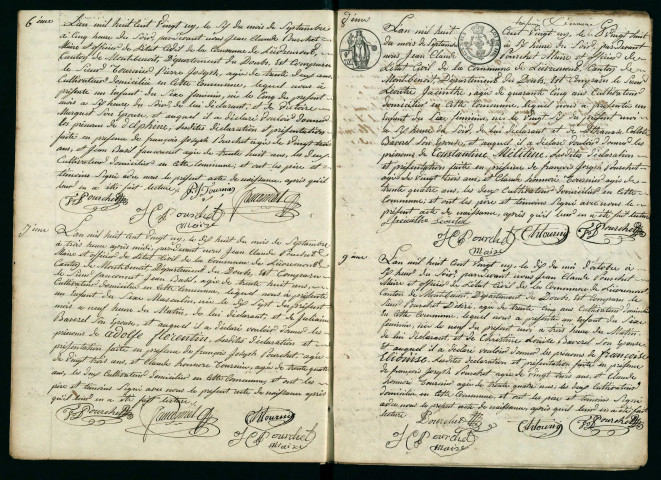 6 ème
L'an mil huit cent vingt un, le six du mois de Septembre
à cinq heures du soir, pardevant nous Jean Claude Pourchet
Maire et officier de l'état civil de la Commune de
Canton de Montbenoit, Département du Doubs, est comparu
le Sieur Tournier Pierre Joseph, agé de trente deux ans,
Cultivateur Domicilié en cette Commune, lequel nous a
présenté un Enfant du Sexe féminin, née le cinq du présent
mois à six heures du Soir, de lui déclarant, et de Victoire
Marguet son Epouse, et auquel il a déclaré vouloir donner
les prénoms de Delphine, lesdites déclaration et présentation
faite en présence de françois Joseph Pourchet agé de vingt trois
ans, et Jean Basil Jeanneret agé de trente huit ans, les deux
Cultivateur Domicilié en cette Commune, et ont les père et
témoins Signé avec nous le présent acte de naissance, après qu'il
leur en a été fait lecture. P. J. Tournier
F J Pourchet
J C Pourchet
Maire
7 ème
L'an mil huit cent vingt un, le dix huit du mois de Septembre
à trois heures après midi, pardevant nous Jean Claude Pourchet
Maire et officier de l'état civil de la Commune de
Canton de Montbenoit, Département du Doubs, est Comparu
le Sieur Jeanneret Jean Basil, agé de trente huit ans,
Cultivateur Domicilié en cette Commune, lequel nous a présenté
un Enfant du Sexe Masculin, née le dix Sept du présent
mois à neuf heures du Matin, de lui déclarant, et de Juliaine
son Epouse, et auquel il a déclaré vouloir donner les
prénoms de adolfe florentin, lesdites déclaration et
présentation faite en présence de françois Joseph Pourchet, agé
de vingt trois ans, et Claude honoré Tournier, agé de trente quatre
ans, les deux Cultivateur Domicilié en cette Commune, et ont les
père et témoins Signé avec nous le présent acte de naissance, après
qu'il leur en a été fait lecture.
F J Pourchet
J C Pourchet
Maire
8 ème
L'an mil huit Cent vingt un, le vingt huit
du mois de Septembre à heure du Soir, pardevant
nous Jean Claude Pourchet Maire et officier de
l'état Civil de la Commune de Canton de
Montbenoit, Département du Doubs, est Comparu le Sieur
hyacinthe, agé de quarante cinq ans Cultivateur
Domicilié en cette Commune, lequel nous a présenté un
Enfant du Sexe féminin, née le vingt du présent mois
à heure du Soir, de lui déclarant, et de
son Epouse, et auquel il a déclaré vouloir donner les
prénoms de Constantine Mélitine, lesdites déclaration
et présentation faite en présence de françois Joseph Pourchet
agé de vingt trois ans, et Claude honoré Tournier agé de
trente quatre ans, les deux Cultivateur Domicilié en cette
Commune, et ont les père et témoins Signé avec nous le
présent acte de naissance, après qu'il leur en a été fait lecture
J C Pourchet
Maire
F J Pourchet
9 ème
L'an mil huit cent vingt un, le dix du mois d'octobre à
heure du Soir, pardevant nous Jean Claude Pourchet
Maire et officier de l'état civil de la Commune de
Canton de Montbenoit, Département du Doubs, est comparu le
Sieur Pourchet agé de trente cinq ans, Cultivateur Domicilié
en cette Commune, lequel nous a présenté un Enfant du Sexe
féminin, née le neuf du présent mois à trois heures du Matin,
de lui déclarant, et de Christine son Epouse
et auquel il a déclaré vouloir donner les prénoms de Françoise
lesdites déclaration et présentation faite en présence
de françois Joseph Pourchet agé de vingt trois ans et Claude
honoré Tournier agé de trente quatre ans, les deux Cultivateur
Domicilié en cette Commune, et ont les père et témoins Signé
avec nous le présent acte de naissance, après qu'il leur en a été fait
lecture Pourchet
F J Pourchet
J C Pourchet
Maire